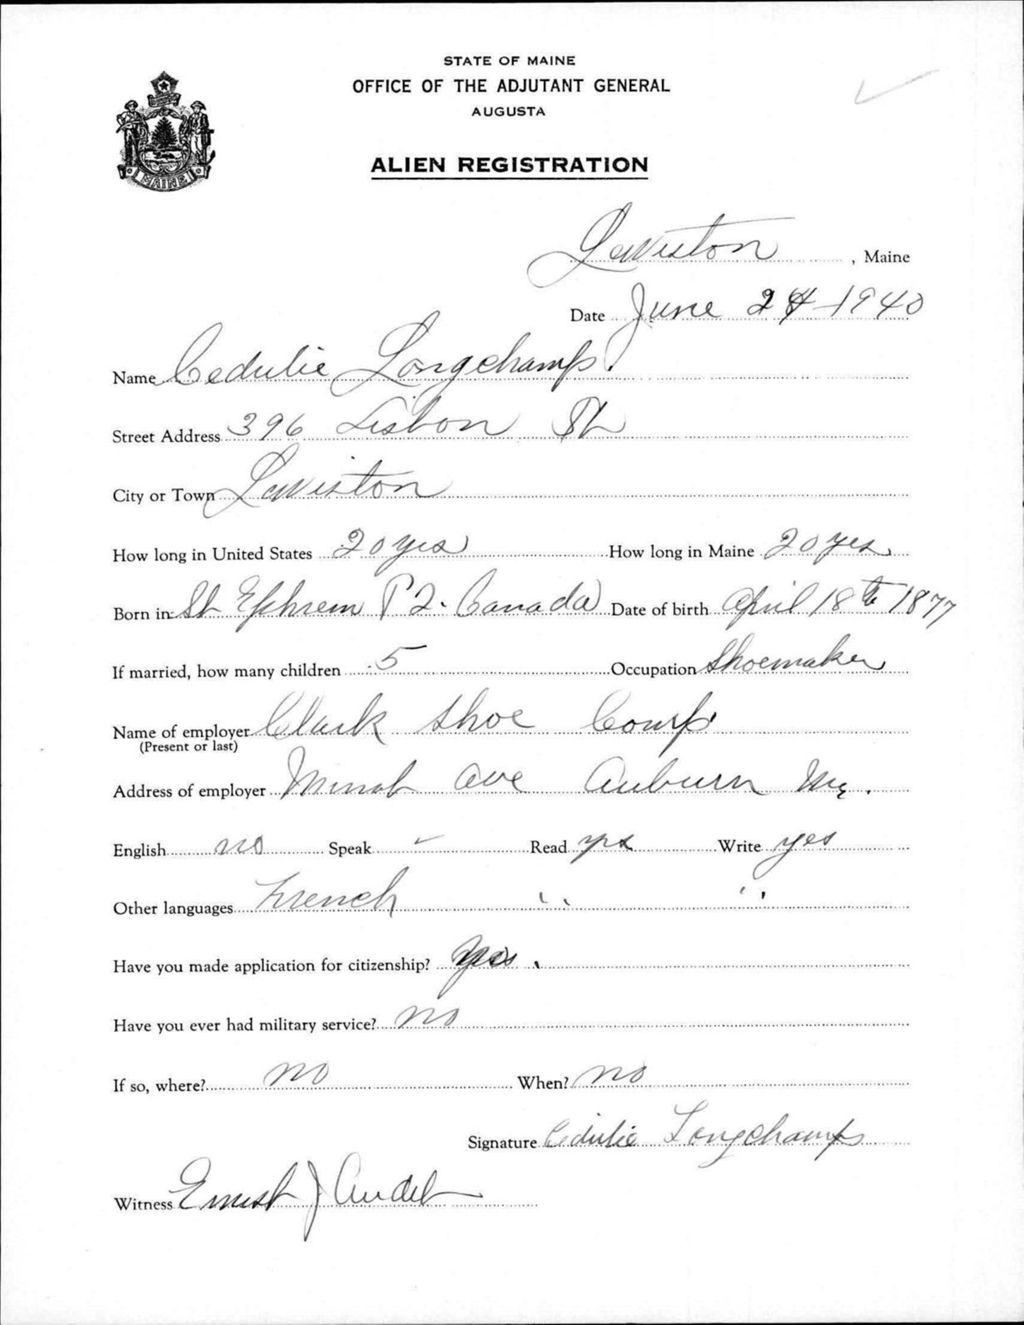 STATE OF MAINE
OFFICE OF THE ADJUTANT GENERAL
AUGUSTA
ALIEN REGISTRATION
MAINE
Lewiston, Maine
Date June 24 1940
Name Cedulie Longchamps.
Street Address 396 Lisbon St
City or Town Lewiston
How long in United States 20 yrs How long in Maine 20 yrs
Born in St Ephrem P2. Canada Date of birth April 18th 1877
If married, how many children 5 Occupation Shoemaker
Name of employer Clark Shoe Comp
(Present or last)
Address of employer Minot Ave Auburn Me.
English no Speak - Read yes Write yes
Other languages French " "
Have you made application for citizenship? Yes.
Have you ever had military service? no
If so, where? no When? no
Signature Cedulie Longchamps
Witness Ernest J